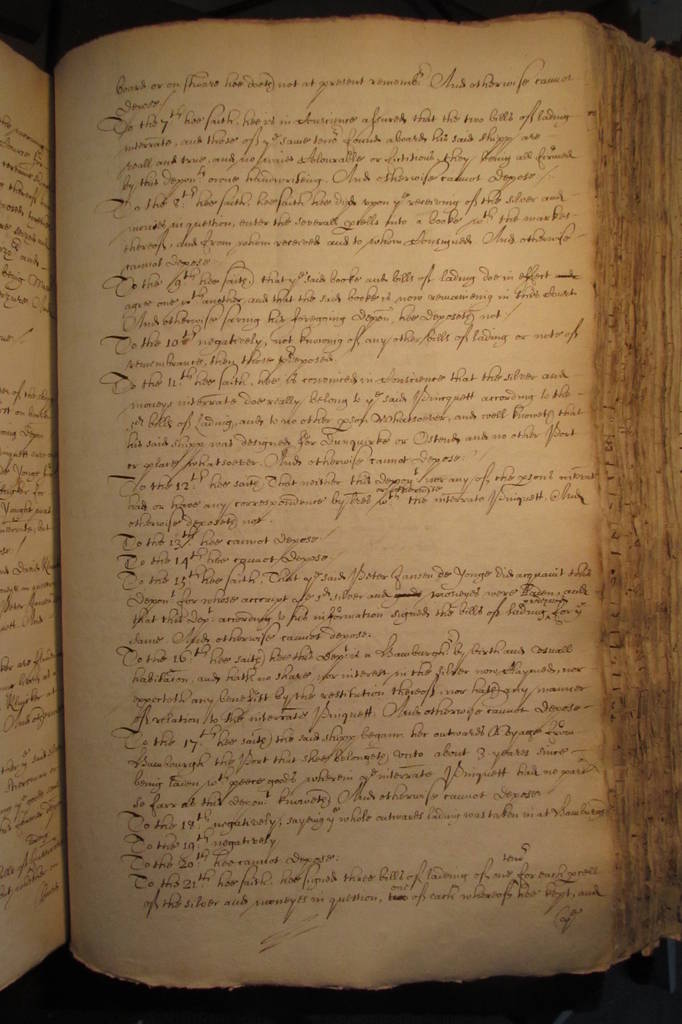 board or on shoare hee doeth not at present rememb:r And otherwise cannot
depose
To the 7th hee saith, hee is in Conscience assured that the two bills of lading
interrate, and those of ye same teno:r found aboard his said shipp are
reall and true, and no waies Colourable or fictitious, they being all firmed
by this depon:t owne handwriting. And otherwise cannot depose /
To the 8:th hee saith, hee saith hee did vpon ye receiving of the silver and
monies in question, enter the severall pcells into a booke wth the markes
thereof, and from whom received and to whom Consigned And otherwise
cannot depose
To the 9th hee saith, that ye said booke and bills of lading doe in effect
agree one wth another, and that the said booke is now remaineing in this Court
And otherwise saving his foregoing depon, hee deposeth not /
To the 10th negatively, not knowing of any other bills of lading or note of
remembrance, then those pdeposed.
To the 11th hee saith, hee is convinced in Conscience that the silver and
moneys interrate doe really belong to ye said Pincquett according to the
sd bills of lading, and to no other pson whatsoever, and well knoweth that
his said shipp was designed for Dunquirke or Ostend and no other Port
or place whatsoever. And otherwise cannot depose /
To the 12th hee saith That neither this depon:t nor any of the psons interrate
had or have any correspondence by lres or otherwise wth the interrate Pinquett. And
otherwise deposeth not
To the 13th hee cannot depose /
To the 14th hee cannot depose /
To the 15th hee saith, That ye said Peter Janson de Jonge did acquaint this
depon:t for whose accompt ye sd silver and moneyes were laden, and
that this dep:t according to his information signed the bills of lading for ye
same And otherwise cannot depose.
To the 16th hee saith, hee this dep:t is a Hamburgh:r by birth and vsuall
habitacon, and hath no share, nor interest in the silver now Claymed, nor
expecteth any benefitt by the restitution thereof nor hath any manner
of relation to the interrate Pinquett. And otherwise cannot depose
To the 17th hee saith, the said shipp began her outwards Voyage from
Hamburgh the Port that shee belongeth vnto about 3 yeares since
being laden wth peece goods wherein ye interrate Pinquett had no part
so farr as this depon:t knoweth, And otherwise cannot depose
To the 18th negatively, saying ye whole outwards lading was taken in at Hamburgh
To the 19th negatively
To the 20th hee cannot depose.
To the 21th hee saith, hee signed three bills of lading of one teno:r for each pcell
of the silver and moneyes in question, one of each whereof hee kept, and